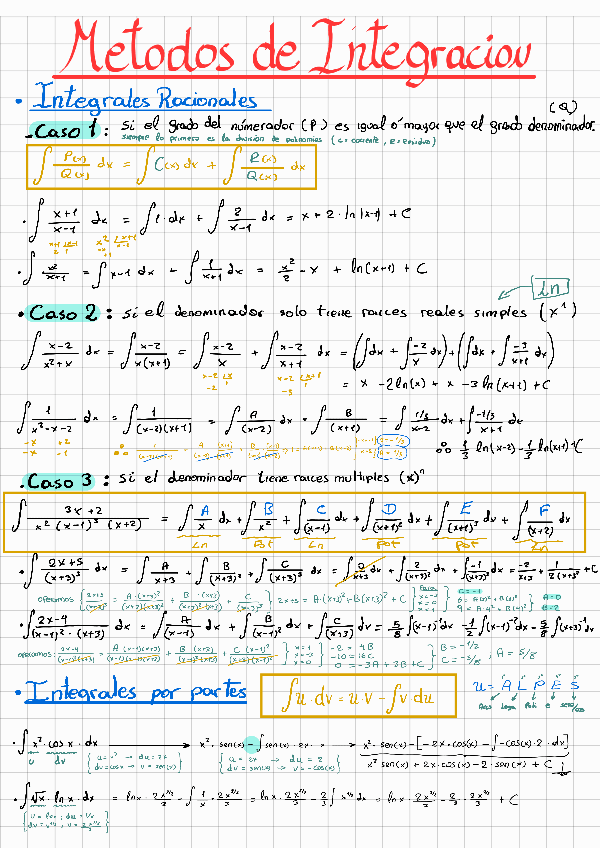 Metodos de Integracion
• Integrales Racionales
(Q)
- Caso 1: Si el grado del númerador (P) es igual ó mayor que el grado denominador.
siempre lo primero es la división de polinomios (C = cociente, R = Residuo)
∫ P(x)/Q(x) dx = ∫ C(x) dx + ∫ R(x)/Q(x) dx
• ∫ (x+1)/(x-1) dx = ∫ 1·dx + ∫ 2/(x-1) dx = x + 2·ln(x-1) + C
• ∫ x²/(x+1) = ∫ x-1 dx + ∫ 1/(x+1) dx = x²/2 - x + ln(x+1) + C
Ln
• Caso 2: Si el denominador solo tiene raices reales simples (x¹)
∫ (x-2)/(x²+x) dx = ∫ (x-2)/(x(x+1)) = ∫ (x-2)/x + ∫ (x-2)/(x+1) dx = (∫dx + ∫ -2/x dx) + (∫dx + ∫ -3/(x+1) dx)
= x - 2ln(x) + x - 3ln(x+1) + C
∫ 1/(x²-x-2) dx = ∫ 1/((x-2)(x+1)) = ∫ A/(x-2) dx + ∫ B/(x+1) = ∫ (1/3)/(x-2) dx + ∫ (-1/3)/(x+1) dx
∴ 1/3 ln(x-2) - 1/3 ln(x+1) + C
- Caso 3: Si el denominador tiene raices multiples (x)ⁿ
∫ (3x+2)/(x²(x-1)³(x+2)) = ∫ A/x dx + ∫ B/x² + ∫ C/(x-1) dx + ∫ D/(x+1)² dx + ∫ E/(x+1)³ dx + ∫ F/(x+2) dx
Ln Pot Ln Pot Pot Ln
• ∫ (2x+5)/(x+3)³ dx = ∫ A/(x+3) + ∫ B/(x+3)² + ∫ C/(x+3)³ dx = ∫ 0/(x+3) dx + ∫ 2/(x+3)² dx + ∫ -1/(x+3)³ dx = -2/(x+3) + 1/(2(x+3)²) + C
operamos 2x+5 = A·(x+3)² + B(x+3) + C
• ∫ (2x-4)/((x-1)²·(x+3)) dx = ∫ A/(x-1) dx + ∫ B/(x-1)² dx + ∫ C/(x+3) dx = 5/8 ∫(x-1)⁻¹dx - 1/2 ∫(x-1)⁻²dx - 5/8 ∫(x+3)⁻¹dx
operamos:
-2 = 4B
-10 = 16C
0 = -3A + 3B + C
B = -1/2
C = -5/8
A = 5/8
• Integrales por partes
∫ u·dv = u·v - ∫ v du
u = A L P E S
• ∫ x²·cos x·dx → x²·sen(x) - ∫ sen(x)·2x·x → x²·sen(x) - [-2x·cos(x) - ∫ -cos(x)·2·dx]
u dv
{ u = x² → du = 2x
dv = cos x → v = sen(x) }
{ u = 2x → du = 2
dv = sen(x) → v = -cos(x) }
x² sen(x) + 2x·cos(x) - 2·sen(x) + C
• ∫ √x·ln x·dx = ln x·2x^(3/2)/3 - ∫ 1/x·2x^(3/2)/3 = ln x·2x^(3/2)/3 - 2/3 ∫ x^(1/2) dx = ln x·2x^(3/2)/3 - 2/3·2x^(3/2)/3 + C